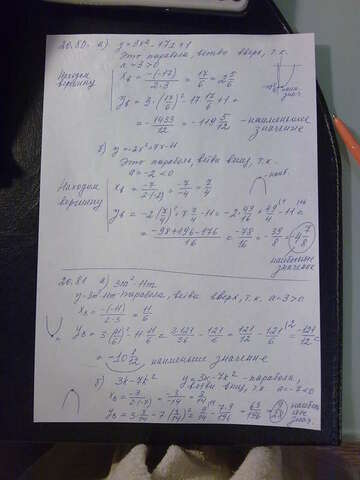 20.80. а) y=3x²-17x+1
Это парабола, ветви вверх, т.к.
a=3>0
Находим вершину
x₆ = -(-17)/2·3 = 17/6 = 2 5/6
y₆ = 3·(17/6)² - 17·17/6 + 1 =
= -1433/12 = -119 5/12 - наименьшее
значение
б) y=-2x²+7x-11
Это парабола, ветви вниз, т.к.
a=-2<0
наиб.
Находим вершину
x₆ = -7/2·(-2) = -7/-4 = 7/4
y₆ = -2(7/4)² + 7·7/4 - 11 = -2·49/16 + 49/4 - 11 =
= -98+196-176/16 = -78/16 = -39/8 = -4 7/8
наибольшее
значение
20.81 а) 3m²-11m
y=3m²-11m парабола, ветви вверх, т.к. a=3>0
x₆ = -(-11)/2·3 = 11/6
y₆ = 3·(11/6)² - 11·11/6 = 3·121/36 - 121/6 = 121/12 - 121/6 = -121/12 =
= -10 1/12 наименьшее значение
б) 3k-7k² y=3k-7k² - парабола,
ветви вниз, т.к. a=-7<0
x₆ = -3/2·(-7) = -3/-14 = 3/14
y₆ = 3·3/14 - 7·(3/14)² = 9/14 - 7·9/196 = 63/196 = 9/28
наибольшее
знач.